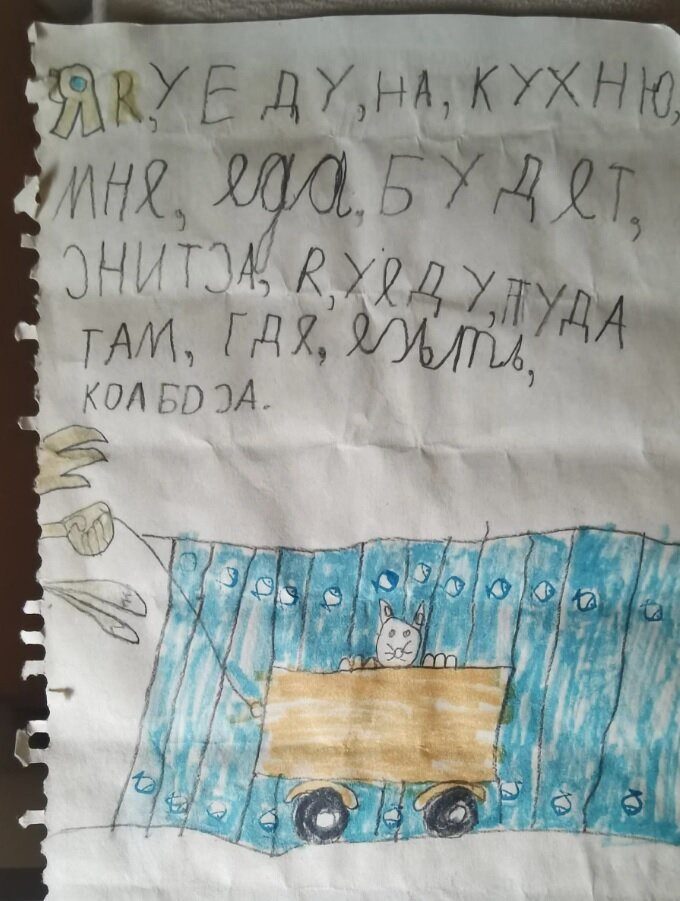 Я Я, УЕДУ, НА, КУХНЮ,
МНЕ, еда, БУДЕТ,
СНИТСА, Я, УЕДУ, ТУДА
ТАМ, ГДЕ, есьть,
КОЛБОСА.